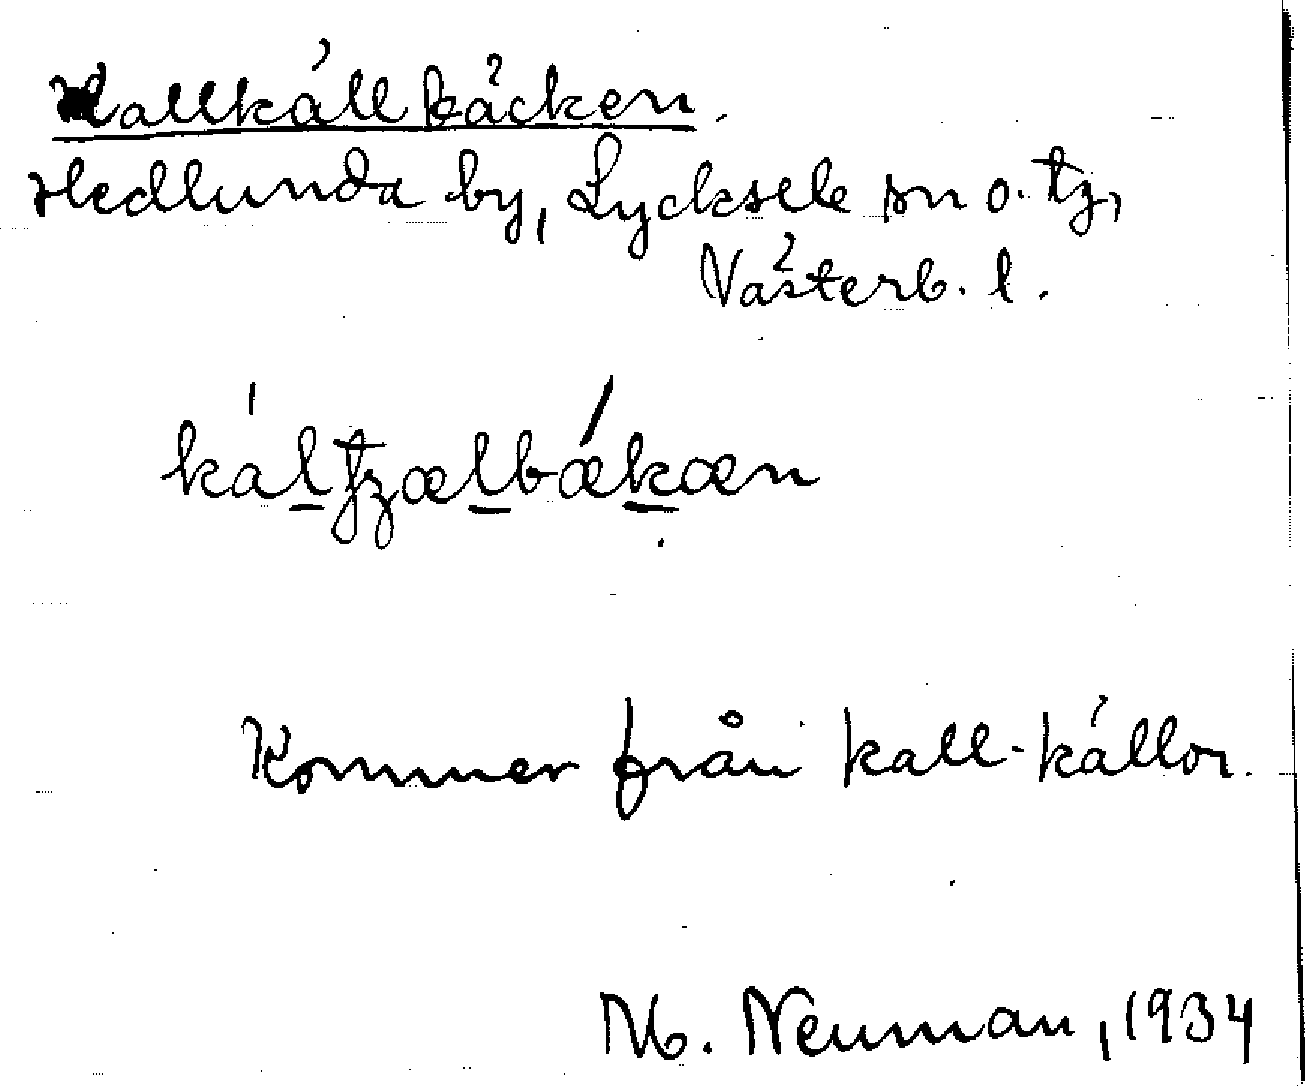 Kallkällbäcken.
Hedlunda by, Lycksele sn o. tg,
Västerb. l.
kálʈʒælbækæn
Kommer från kall-källor.
M. Neuman, 1934